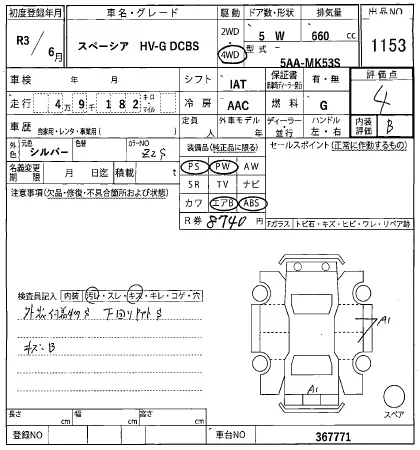 初度登録年月 車名・グレード 駆動 ドア数・形状 排気量 出品NO
R3/6月 スペーシア HV-G DCBS 2WD 4WD 5 W 660 cc 1153
型式 5AA-MK53S
車検 年 月 シフト IAT 保証書 有・無 評価点
走行 4万9千182 キロ・マイル 冷房 AAC 燃料 G 4
車歴 自家用・レンタ・事業用( ) 定員 人 外車モデル 年 ディーラー・並行 ハンドル 左・右 内装評価 B
外色 元色 シルバー 色替 カラーNO Z2S 装備品(純正品に限る) セールスポイント(正常に作動するもの)
名義変更期限 月 日迄 積載 t PS PW AW
注意事項(欠品・修復・不具合箇所および状態) SR TV ナビ
カワ エアB ABS
R券 8740円 Fガラス トビ石・キズ・ヒビ・ワレ・リペア跡
検査員記入 内装 汚れ・スレ・キズ・キレ・コゲ・穴
下回りサビS
キズ・B
A1
A1
スペア
長さ cm 幅 cm 高さ cm
登録NO 車台NO 367771